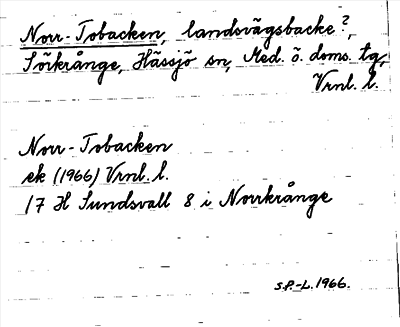 Norr-Tobacken, landsvägsbacke?,
Sörkrånge, Hässjö sn, Med. ö. doms. tg,
Vrnl. l.
Norr-Tobacken
ek (1966) Vrnl. l.
17 H Sundsvall 8 i Norrkrånge
S.P.-L. 1966.